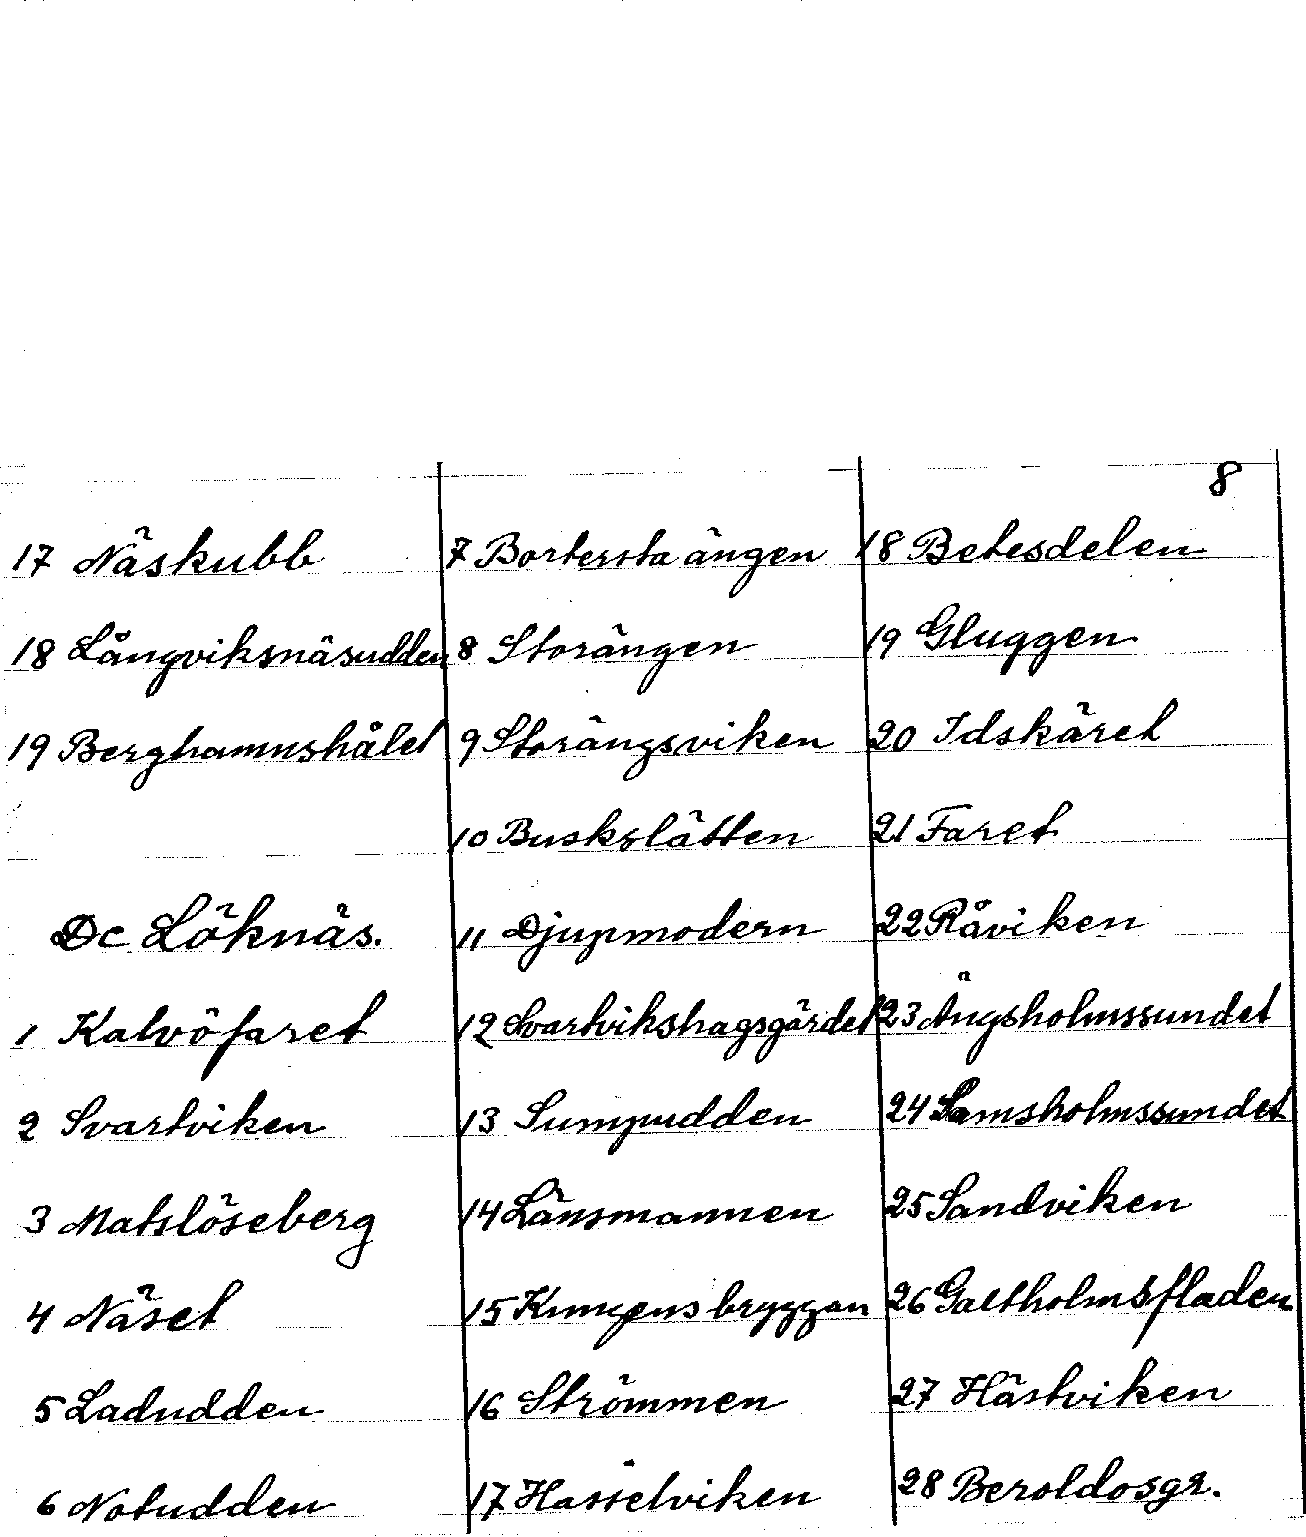 8
17 Näskubb
18 Långviksnäsudden
19 Berghamnshålet
Dc Löknäs.
1 Kalvöfaret
2 Svartviken
3 Matslöseberg
4 Näset
5 Ladudden
6 Notudden
7 Bortersta ängen
8 Storängen
9 Storängsviken
10 Buskslätten
11 Djupmodern
12 Svartvikshagsgärdet
13 Sumpudden
14 Länsmannen
15 Kungens bryggan
16 Strömmen
17 Hasselviken
18 Betesdelen
19 Gluggen
20 Idskäret
21 Faret
22 Råviken
23 Ängsholmssundet
24 Lamsholmssundet
25 Sandviken
26 Galtholmsfladen
27 Hästviken
28 Beroldosgr.